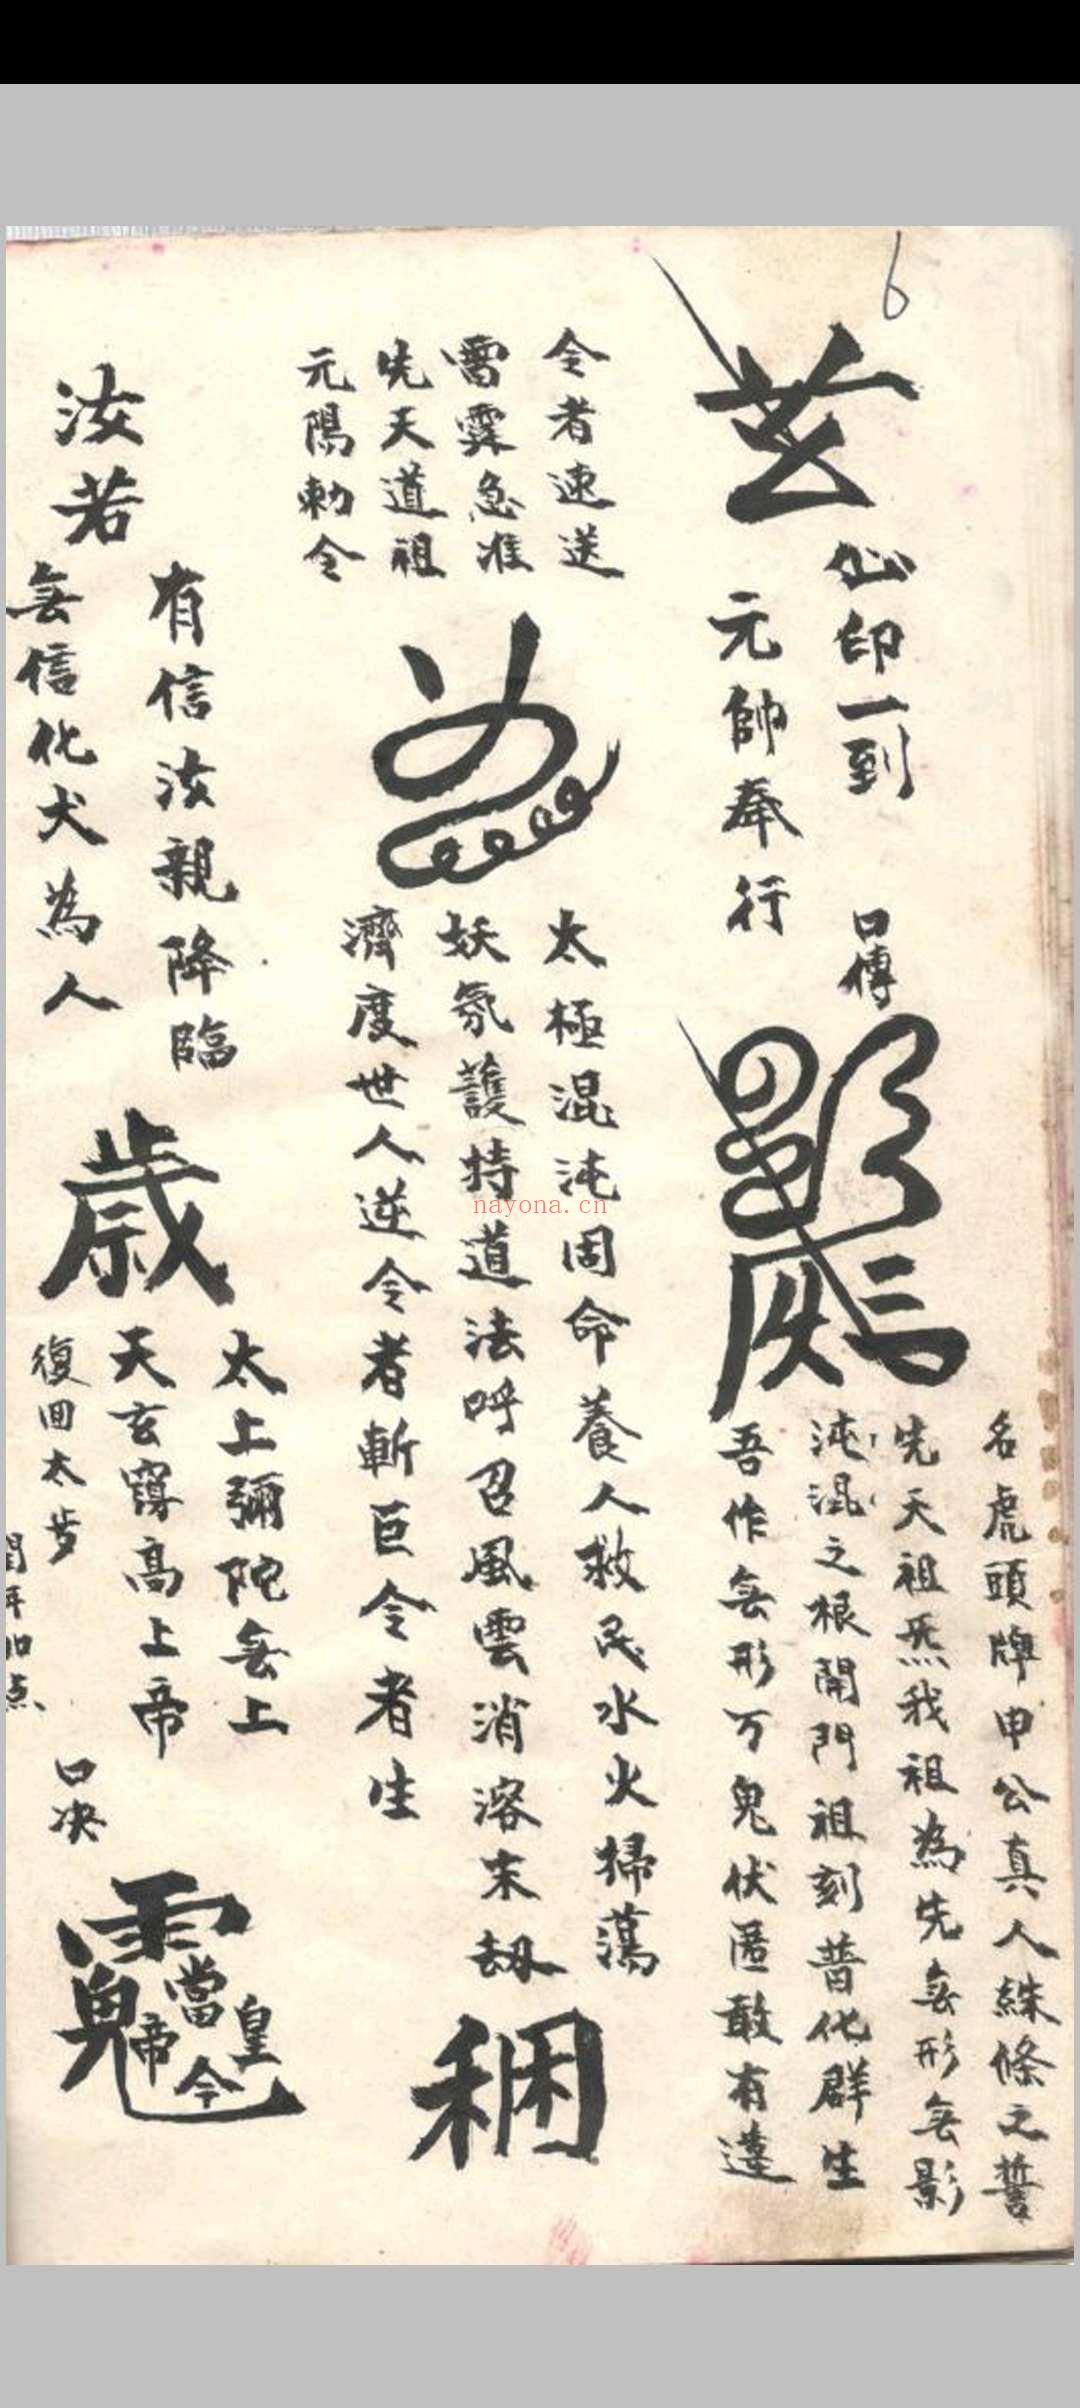 6
心印一到
元帥奉行
口傳
名虎頭牌申公真人絲條之誓
先天祖炁我祖為先無形無影
沌混之根開門祖刻普化群生
吾作無形万鬼伏匿敢有違
令者速送
雷霆急准
先天道祖
元陽勅令
太極混沌固命養人救民水火掃蕩
妖氛護持道法呼召風雲消溶末劫
濟度世人逆令者斬巨令者生
汝若
有信汝親降臨
無信化犬為人
歲
太上彌陀無上
天玄穹高上帝
復回太步
閏年加点
口决
nayona.cn